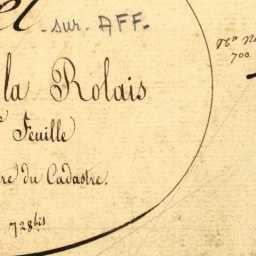 el
- sur. AFF -
la Rolais
e Feuille
re du Cadastre.
728bis
700